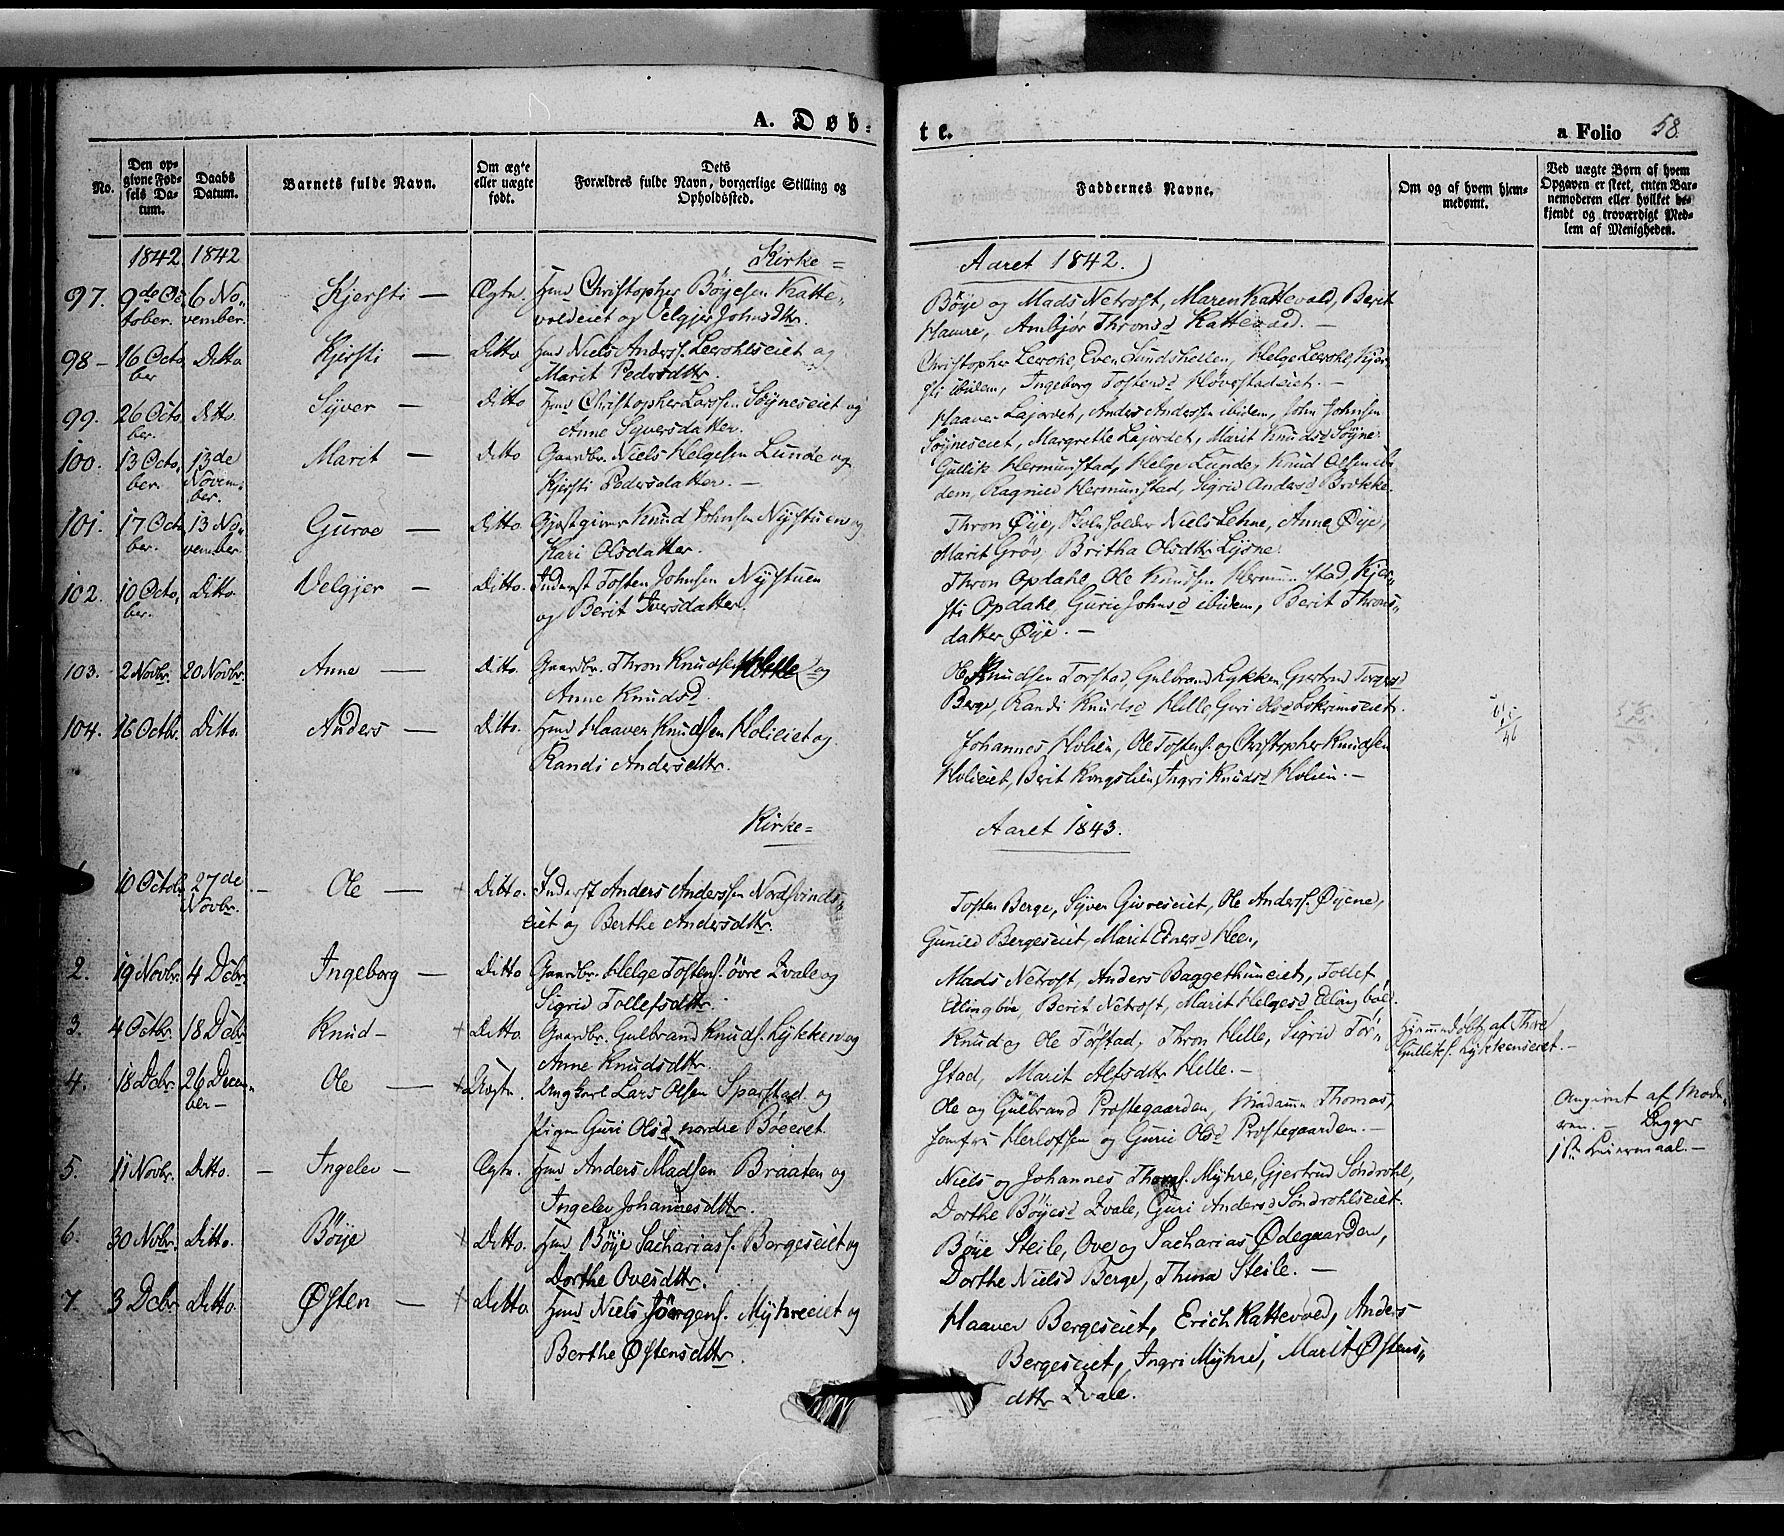 A. Døb-
te.
a Folio 58
No.
Den op-
givne Fød-
sels Da-
tum.
Daabs
Datum.
Barnets fulde Navn.
Om ægte
eller uægte
født.
Dets
Forældres fulde Navn, borgerlige Stilling og
Opholdssted.
Faddernes Navne.
Om og af hvem hjem-
medømt.
Ved uægte Børn af hvem
Opgaven er skeet, enten Bar-
nemoderen eller hvilket be-
kjendt og troværdigt Med-
lem af Menigheden.
1842 1842 Kirke = Aaret 1842.
97. 9de Oc- 6 No- Kjersti — Ægte. Hmd Christopher Bøyesen Katte-
tober. vember. voldeiet og Velgjer Johnsdttr.
Bøye og Mads Netrost, Maren Kattevold, Berit
Haure, Ambjør Thronsd Kattevold. —
98 - 16 Octo Ditto Kjersti — Ditto Hmd Niels Anderss. Leerohlseiet og
ber Marit Pedersdttr.
Christopher Leerohl, Even Sundshellen, Helge Leerohl, Kjer-
sti ibidem, Ingeborg Tostensd Høverstadeiet. —
99. 26 Octo Ditto. Syver — Ditto Hmd Christopher Larssen Søyneseiet og
ber. Anne Syversdatter.
Haaver Lajordet, Anders Anderssen ibidem, John Johnsen
Søyneseiet, Margrethe Lajordet, Marit Knudsd Søyne.
100. 13 Octo, 13de Marit — Ditto Gaardbr. Niels Helgesen Lunde og
ber. Novem- Kjersti Pedersdatter. —
ber.
Gullik Hermunstad, Helge Lunde, Knud Olsen ibi-
dem, Ragnild Hermunstad, Sigrid Andersd Brekke.
101. 17 Oct 13 No- Guroe — Ditto. Gjæstgiver Knud Johnsen Nystuen og
ber. vember Kari Olsdatter.
Thron Øye, Niels Lehne, Anne Øye,
Marit Grøv, Britha Olsdttr Lysne.
102. 10 Octo, Ditto Velgjer — Ditto. Inderst Tosten Johnsen Nystuen
ber. og Berit Iversdatter.
Thron Opdahl, Ole Knudsen Hermunstad, Kjer-
sti Opdahl, Guri Johnsd ibidem, Berit Throns-
datter Øye. —
103. 2 Novbr. 20 Novbr. Anne — Ditto. Gaardbr. Thron Knudsen Helle og
Anne Knudsd.
Ole Knudsen Torstad, Gulbrand Lykken, Gjertrud
Berge, Randi Knudsd Helle, Guri Olsd
104. 16 Octbr. Ditto. Anders — Ditto. Hmd Haaver Knudsen Holieiet og
Randi Andersdttr.
Johannes Holien, Ole Tostens. og Christopher Knudsen
Holieiet, Berit Kongslien, Ingri Knudsd Holien. —
Kirke = Aaret 1843.
10 Octob. 27de — Ole — + Ditto. Inderst Anders Anderssen Nordsvinds-
Novbr. eiet og Berthe Andersdttr.
Tosten Berge, Syver Givreseiet, Ole Anderss. Øyene,
Gunild Bergeseiet, Marit Einersd Hee.,
2. 19 Novbr. 4 Dcbr. Ingeborg — Ditto Gaardbr. Helge Tostens. øvre Qvale og
Sigrid Tollefsdttr.
Mads Netrost, Anders Baggethuneiet, Tollef
Ellingbøe, Berit Netrost, Marit Helgesd Ellingbøe.
3. 4 Octbr. 18 Dcbr Knud - + Ditto. Gaardbr. Gulbrand Knuds. Lykken og
Anne Knudsdttr.
Knud og Ole Torstad, Thron Helle, Sigrid Tor-
stad, Marit Alfsdttr Helle. —
Hjemmedøbt af Thore
Gulliks. Lykkenseiet. —
4. 18 Dcbr. 26 Decem- Ole — + Uægte. Ungkarl Lars Olsen Sparstad og
ber — Pigen Guri Olsd nordre Bøeeiet.
Ole og Gulbrand Prestegaarden, Madame Thomas,
Jomfru Herlofsen og Guri Olsd Prestegaarden. —
Angivet af Mode-
ren. — Begges
1ste Leiermaal. —
5. 11 Novbr. Ditto. — Ingelev — Ægte. Hmd Anders Madsen Braaten og
Ingelev Johannesdttr.
Niels og Johannes Myhre, Gjertrud Søndrohl,
Dorthe Bøyesd Qvale, Guri Andersd Søndrohlseiet.
6. 30 Novbr. Ditto. Bøye + Ditto. Hmd Bøye Sachariass. Bergeseiet og
Dorthe Ovesdttr.
Bøye Steile, Ove og Sacharias Ødegaarden,
Dorthe Nielsd Berge, Thina Steile. —
7. 3 Dcbr Ditto. Østen — + Ditto. Hmd Niels Jørgens. Myhreeiet og
Berthe Østensdttr.
Haaver Bergeseiet, Erich Kattevold, Anders
Bergeseiet, Ingri Myhre, Marit Østens-
dttr Qvale.